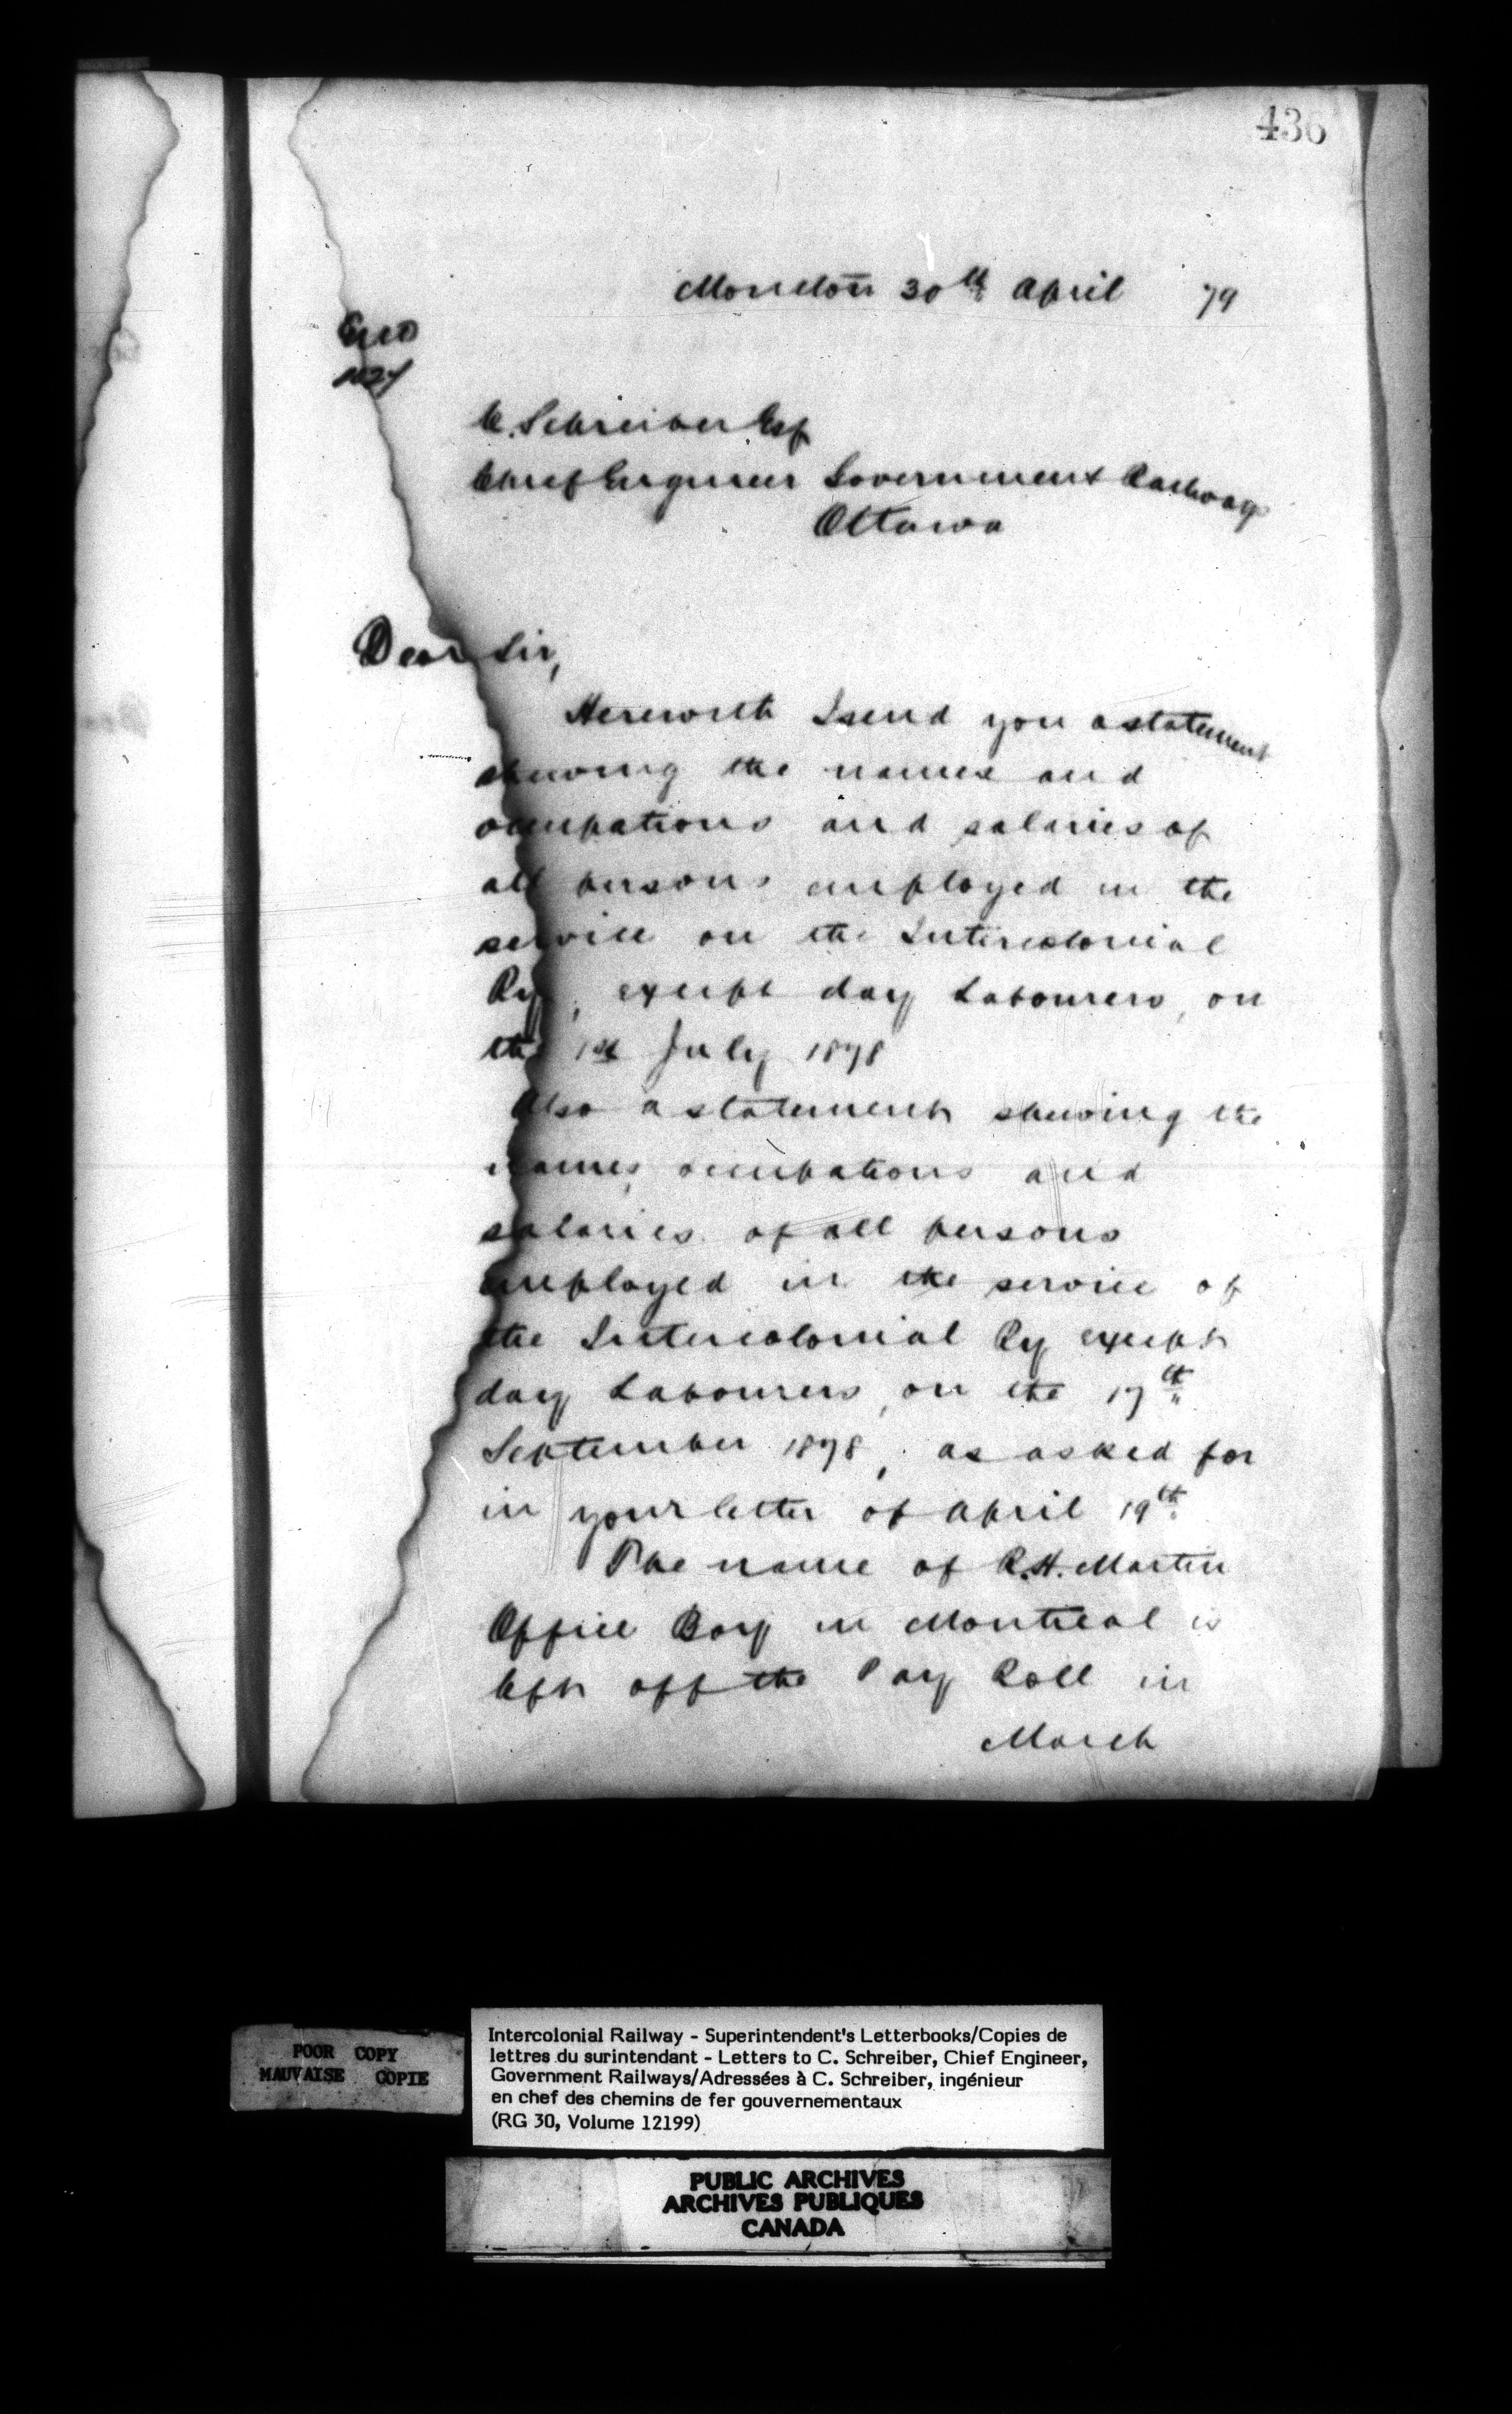 436
Moncton 30th April 79
C. Schreiber Esq
Chief Engineer Government Railways
Ottawa
Dear Sir,
Herewith I send you a statement
shewing the names and
occupations and salaries of
all persons employed in the
service on the Intercolonial
Ry, except day Labourers, on
the 1st July 1878
Also a statement shewing the
names, occupations and
salaries of all persons
employed in the service of
the Intercolonial Ry except
day Labourers, on the 17th
September 1878, as asked for
in your letter of April 19th
The name of R.H. Martin
Office Boy in Montreal is
left off the Pay Roll in
March
POOR COPY
MAUVAISE COPIE
Intercolonial Railway - Superintendent's Letterbooks/Copies de
lettres du surintendant - Letters to C. Schreiber, Chief Engineer,
Government Railways/Adressées à C. Schreiber, ingénieur
en chef des chemins de fer gouvernementaux
(RG 30, Volume 12199)
PUBLIC ARCHIVES
ARCHIVES PUBLIQUES
CANADA